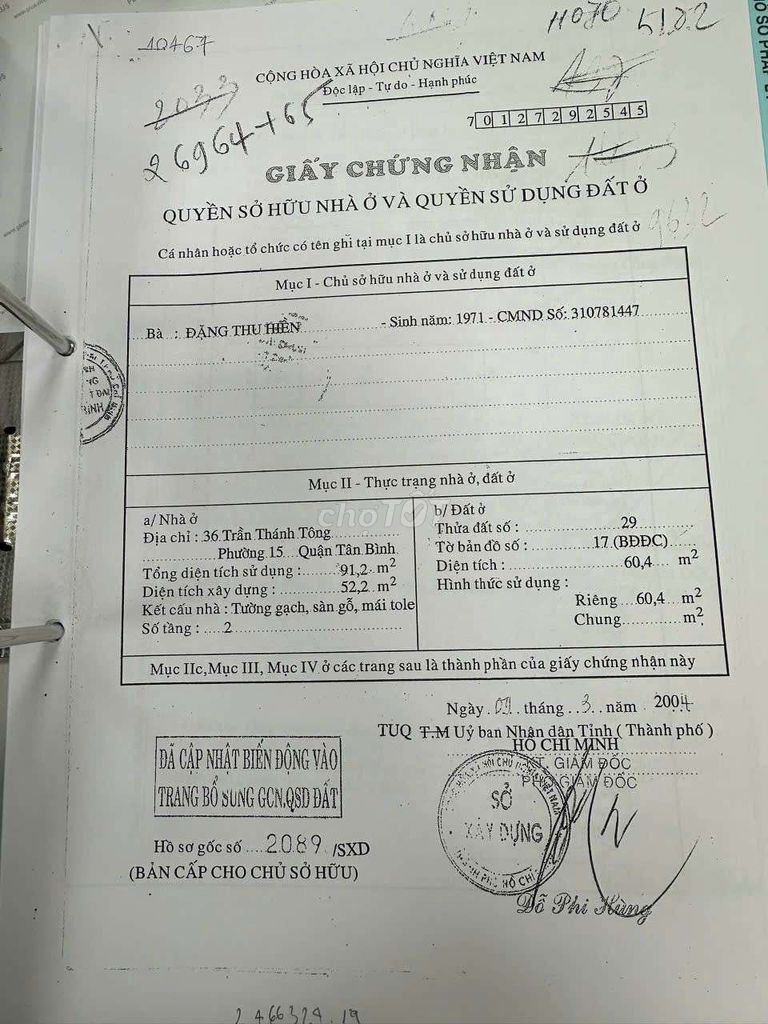 10467
H070 5122
CỘNG HÒA XÃ HỘI CHỦ NGHĨA VIỆT NAM
Độc lập - Tự do - Hạnh phúc
2033
26964+65
70127292545
GIẤY CHỨNG NHẬN
QUYỀN SỞ HỮU NHÀ Ở VÀ QUYỀN SỬ DỤNG ĐẤT Ở
9632
Cá nhân hoặc tổ chức có tên ghi tại mục I là chủ sở hữu nhà ở và sử dụng đất ở
Mục I - Chủ sở hữu nhà ở và sử dụng đất ở
Bà : ĐẶNG THU HIỀN - Sinh năm: 1971 - CMND Số: 310781447
Mục II - Thực trạng nhà ở, đất ở
a/ Nhà ở
Địa chỉ : 36 Trần Thánh Tông
Phường 15 Quận Tân Bình
Tổng diện tích sử dụng : 91,2 m2
Diện tích xây dựng : 52,2 m2
Kết cấu nhà : Tường gạch, sàn gỗ, mái tole
Số tầng : 2
b/ Đất ở
Thửa đất số : 29
Tờ bản đồ số : 17 (BĐĐC)
Diện tích : 60,4 m2
Hình thức sử dụng :
Riêng 60,4 m2
Chung m2
choTỐT
Mục IIc, Mục III, Mục IV ở các trang sau là thành phần của giấy chứng nhận này
Ngày 09 tháng 3 năm 2004
TUQ T.M Uỷ ban Nhân dân Tỉnh ( Thành phố )
HỒ CHÍ MINH
KT. GIÁM ĐỐC
PHÓ GIÁM ĐỐC
SỞ
XÂY DỰNG
THÀNH PHỐ HỒ CHÍ
Đỗ Phi Hùng
ĐÃ CẬP NHẬT BIẾN ĐỘNG VÀO
TRANG BỔ SUNG GCN, QSD ĐẤT
Hồ sơ gốc số 2089 /SXD
(BẢN CẤP CHO CHỦ SỞ HỮU)